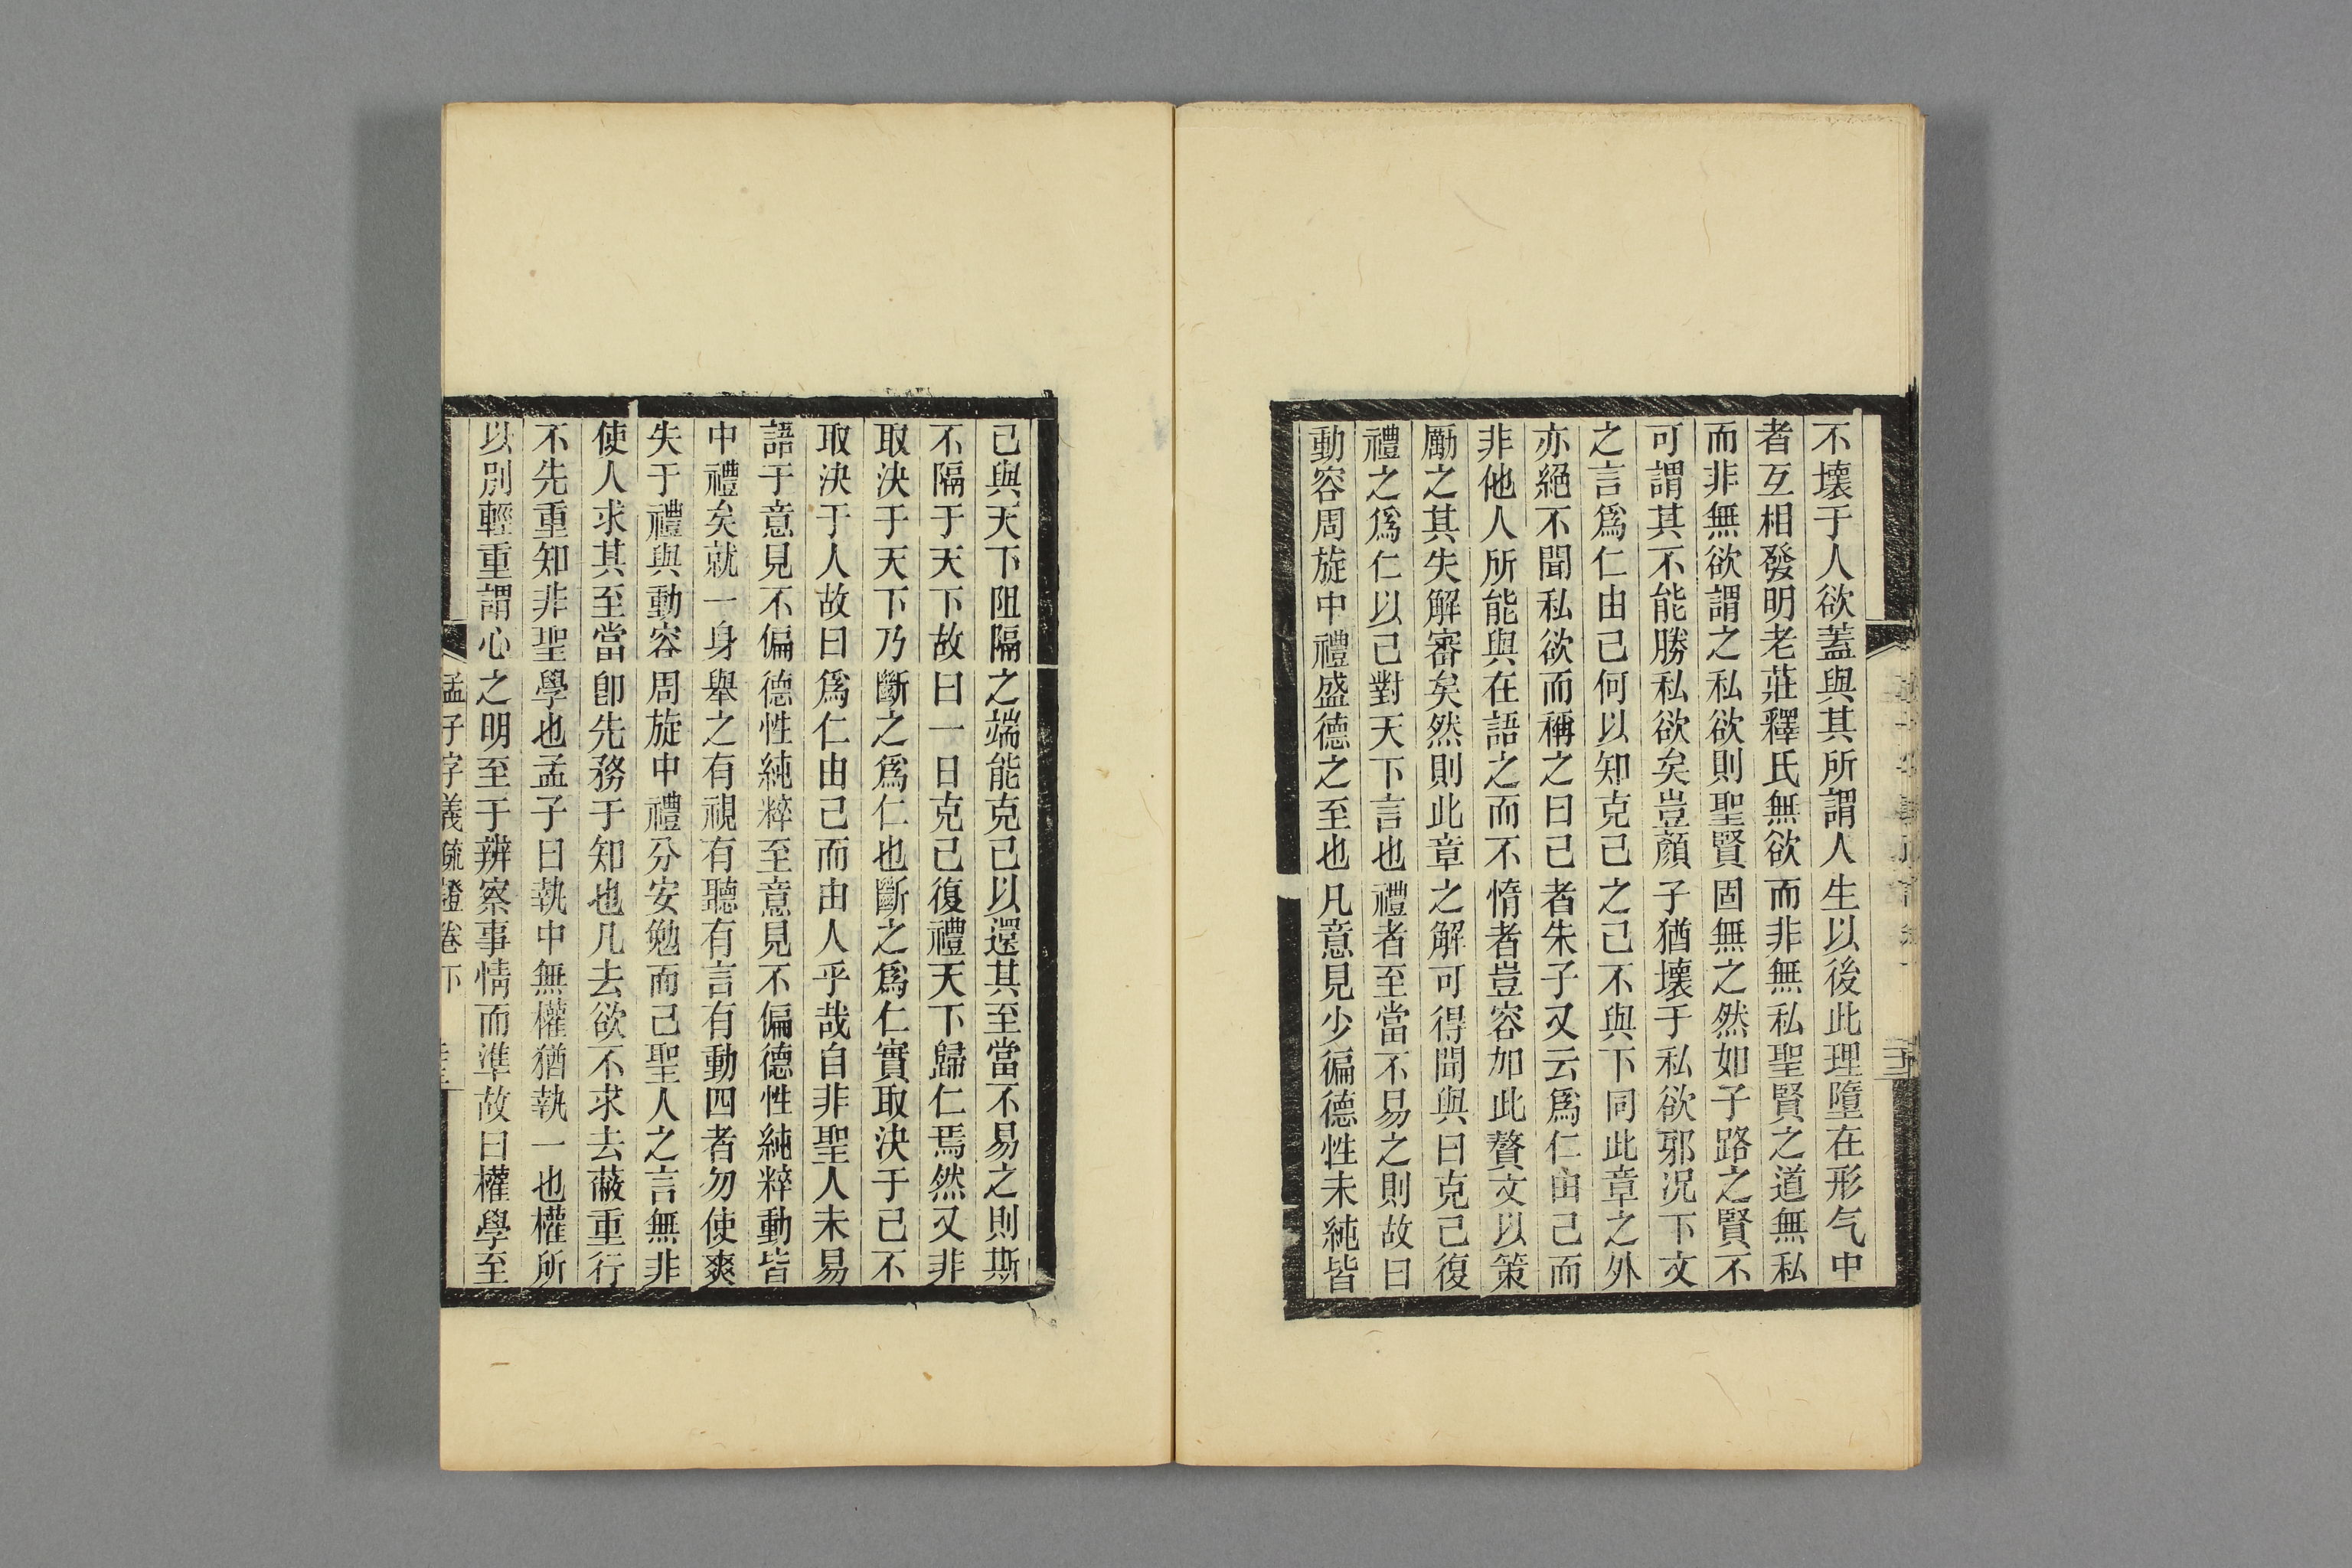 不壞于人欲蓋與其所謂人生以後此理墮在形气中
者互相發明老莊釋氏無欲而非無私聖賢之道無私
而非無欲謂之私欲則聖賢固無之然如子路之賢不
可謂其不能勝私欲矣豈顏子猶壞于私欲邪况下文
之言爲仁由己何以知克己之己不與下同此章之外
亦絕不聞私欲而稱之曰己者朱子又云爲仁由己而
非他人所能與在語之而不惰者豈容加此贅文以策
勵之其失解審矣然則此章之解可得聞與曰克己復
禮之爲仁以己對天下言也禮者至當不易之則故曰
動容周旋中禮盛德之至也凡意見少徧德性未純皆
己與天下阻隔之端能克己以還其至當不易之則斯
不隔于天下故曰一日克己復禮天下歸仁焉然又非
取決于天下乃斷之爲仁也斷之爲仁實取決于己不
取決于人故曰爲仁由己而由人乎哉自非聖人未易
語于意見不偏德性純粹至意見不偏德性純粹動皆
中禮矣就一身舉之有視有聽有言有動四者勿使爽
失于禮與動容周旋中禮分安勉而己聖人之言無非
使人求其至當卽先務于知也凡去欲不求去蔽重行
不先重知非聖學也孟子曰執中無權猶執一也權所
以別輕重謂心之明至于辨察事情而準故曰權學至
孟子字義疏證卷下